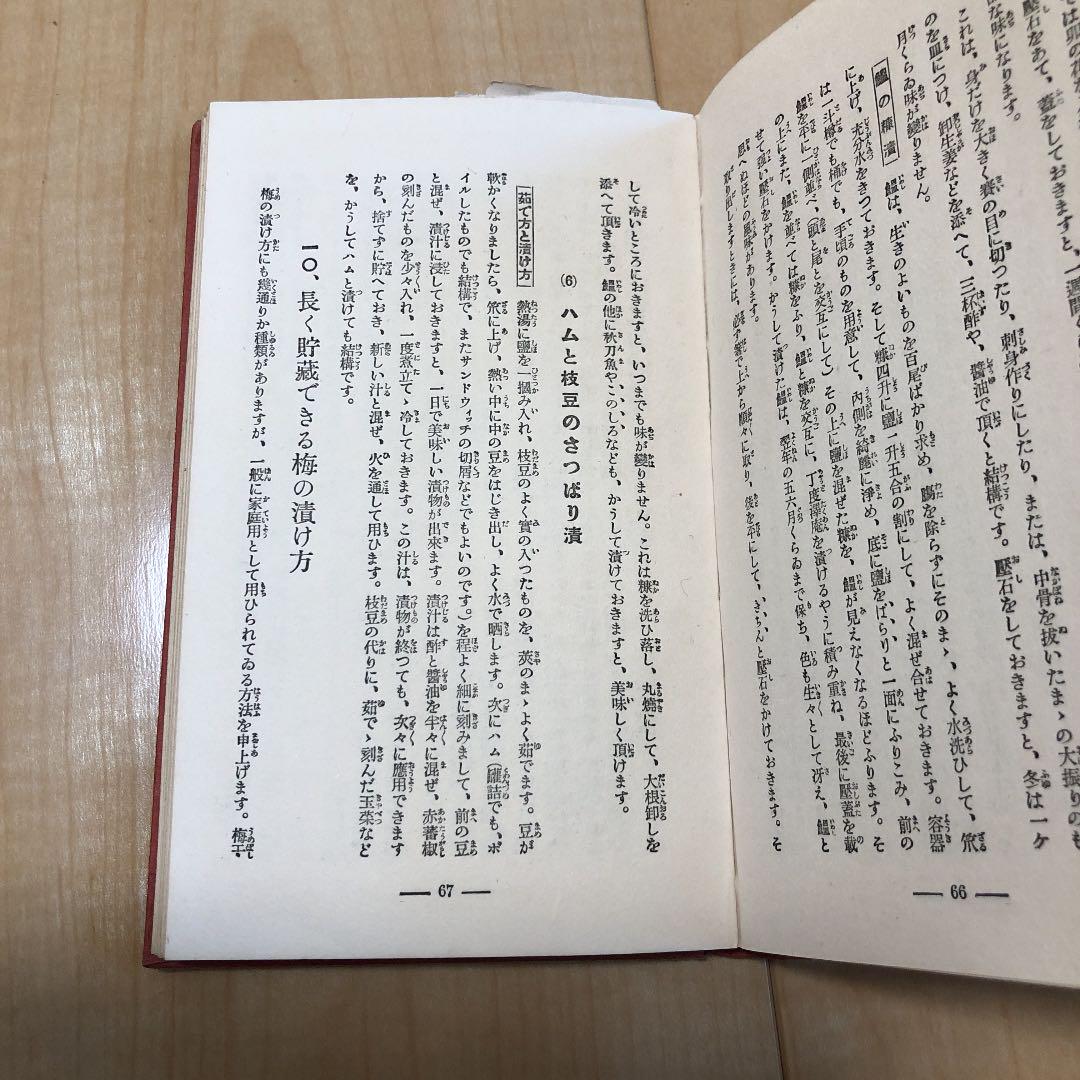 な味になります。
これは、身だけを大きく賽の目に切つたり、刺身作りにしたり、または、中骨を拔いたまゝの大振りのも
のを皿につけ、卸生姜などを添へて、三杯酢や、醬油で頂くと結構です。壓石をしておきますと、冬は一ケ
月くらゐ味が變りません。
鰮の糠漬
鰮は、生きのよいものを百尾ばかり求め、膓を除らずにそのまゝ、よく水洗ひして、笊
に上げ、充分水をきつておきます。そして糠四升に鹽一升五合の割にして、よく混ぜ合せておきます。容器
は一斗樽でも桶でも、手頃のものを用意して、内側を綺麗に淨め、底に鹽をぱらりと一面にふりこみ、前の
鰮を平に一側並べ、(頭と尾とを交互にして)その上に鹽を混ぜた糠を、鰮が見えなくなるほどふります。そ
の上にまた、鰮を並べては糠をふり、鰮と糠を交互に、丁度澤庵を漬けるやうに積み重ね、最後に壓蓋を載
せて强い壓石をかけます。かうして漬けた鰮は、翌年の五六月くらゐまで保ち、色も生々として冴え、鰮と
思へぬほどの風味があります。
取り出しますときには、必ず箸で上から順々に取り、後を平にして、きちんと壓石をかけておきます。そ
66
して冷いところにおきますと、いつまでも味が變りません。これは糠を洗ひ落し、丸燒にして、大根卸しを
添へて頂きます。鰮の他に秋刀魚やこのしろなども、かうして漬けておきますと、美味しく頂けます。
(6) ハムと枝豆のさつぱり漬
茹で方と漬け方
熱湯に鹽を一摑み入れ、枝豆のよく實の入つたものを、莢のまゝよく茹でます。豆が
軟かくなりましたら、笊に上げ、熱い中に中の豆をはじき出し、よく水で晒します。次にハム(罐詰でも、ボ
イルしたものでも結構で、またサンドウィッチの切屑などでもよいのです。)を程よく細に刻みまして、前の豆
と混ぜ、漬汁に浸しておきますと、一日で美味しい漬物が出來ます。漬汁は酢と醬油を半々に混ぜ、赤蕃椒
の刻んだものを少々入れ、一度煮立てゝ冷しておきます。この汁は、漬物が終つても、次々に應用できます
から、捨てずに貯へておき、新しい汁と混ぜ、火を通して用ひます。枝豆の代りに、茹でゝ刻んだ玉菜など
を、かうしてハムと漬けても結構です。
一〇、長く貯藏できる梅の漬け方
梅の漬け方にも幾通りか種類がありますが、一般に家庭用として用ひられてゐる方法を申上げます。梅干、
67